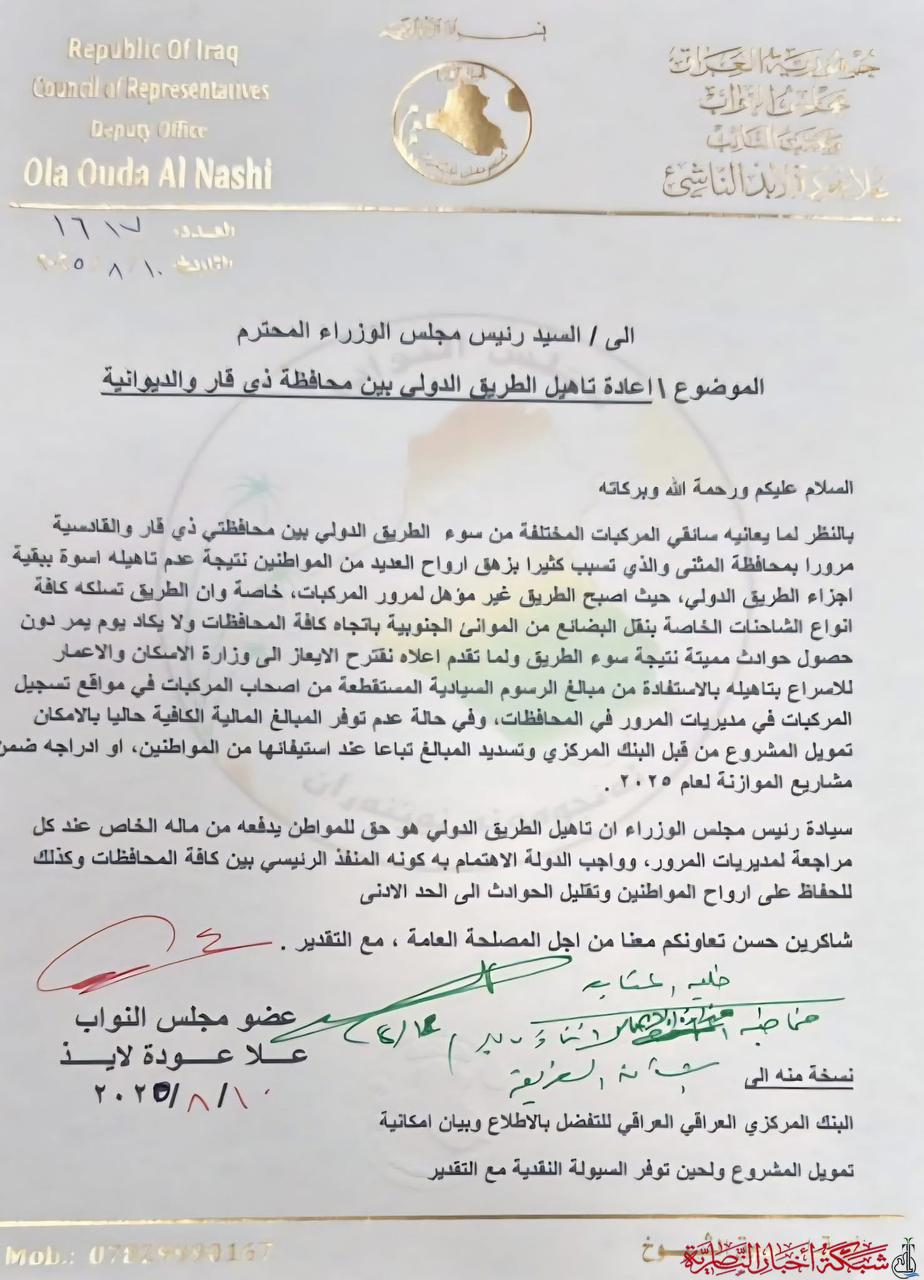 Republic Of Iraq
Council of Representatives
Deputy Office
Ola Ouda Al Nashi
جمهورية العراق
مجلس النواب
مكتب النائب
علا عودة لايذ الناشئ
العدد: ١٦١٧
التاريخ: ١٠ / ٨ / ٢٠٢٥
الى / السيد رئيس مجلس الوزراء المحترم
الموضوع \ اعادة تاهيل الطريق الدولي بين محافظة ذي قار والديوانية
السلام عليكم ورحمة الله وبركاته
بالنظر لما يعانيه سائقي المركبات المختلفة من سوء الطريق الدولي بين محافظتي ذي قار والقادسية
مرورا بمحافظة المثنى والذي تسبب كثيرا بزهق ارواح العديد من المواطنين نتيجة عدم تاهيله اسوة ببقية
اجزاء الطريق الدولي، حيث اصبح الطريق غير مؤهل لمرور المركبات، خاصة وان الطريق تسلكه كافة
انواع الشاحنات الخاصة بنقل البضائع من الموانئ الجنوبية باتجاه كافة المحافظات ولا يكاد يوم يمر دون
حصول حوادث مميتة نتيجة سوء الطريق ولما تقدم اعلاه نقترح الايعاز الى وزارة الاسكان والاعمار
للاسراع بتاهيله بالاستفادة من مبالغ الرسوم السيادية المستقطعة من اصحاب المركبات في مواقع تسجيل
المركبات في مديريات المرور في المحافظات، وفي حالة عدم توفر المبالغ المالية الكافية حاليا بالامكان
تمويل المشروع من قبل البنك المركزي وتسديد المبالغ تباعا عند استيفائها من المواطنين، او ادراجه ضمن
مشاريع الموازنة لعام ٢٠٢٥ .
سيادة رئيس مجلس الوزراء ان تاهيل الطريق الدولي هو حق للمواطن يدفعه من ماله الخاص عند كل
مراجعة لمديريات المرور، وواجب الدولة الاهتمام به كونه المنفذ الرئيسي بين كافة المحافظات وكذلك
للحفاظ على ارواح المواطنين وتقليل الحوادث الى الحد الادنى
شاكرين حسن تعاونكم معنا من اجل المصلحة العامة ، مع التقدير .
عضو مجلس النواب
علا عودة لايذ
٢٠٢٥/٨/١٠
نسخة منه الى
البنك المركزي العراقي العراقي للتفضل بالاطلاع وبيان امكانية
تمويل المشروع ولحين توفر السيولة النقدية مع التقدير
Mob.:
شبكة أخبار الناصرية